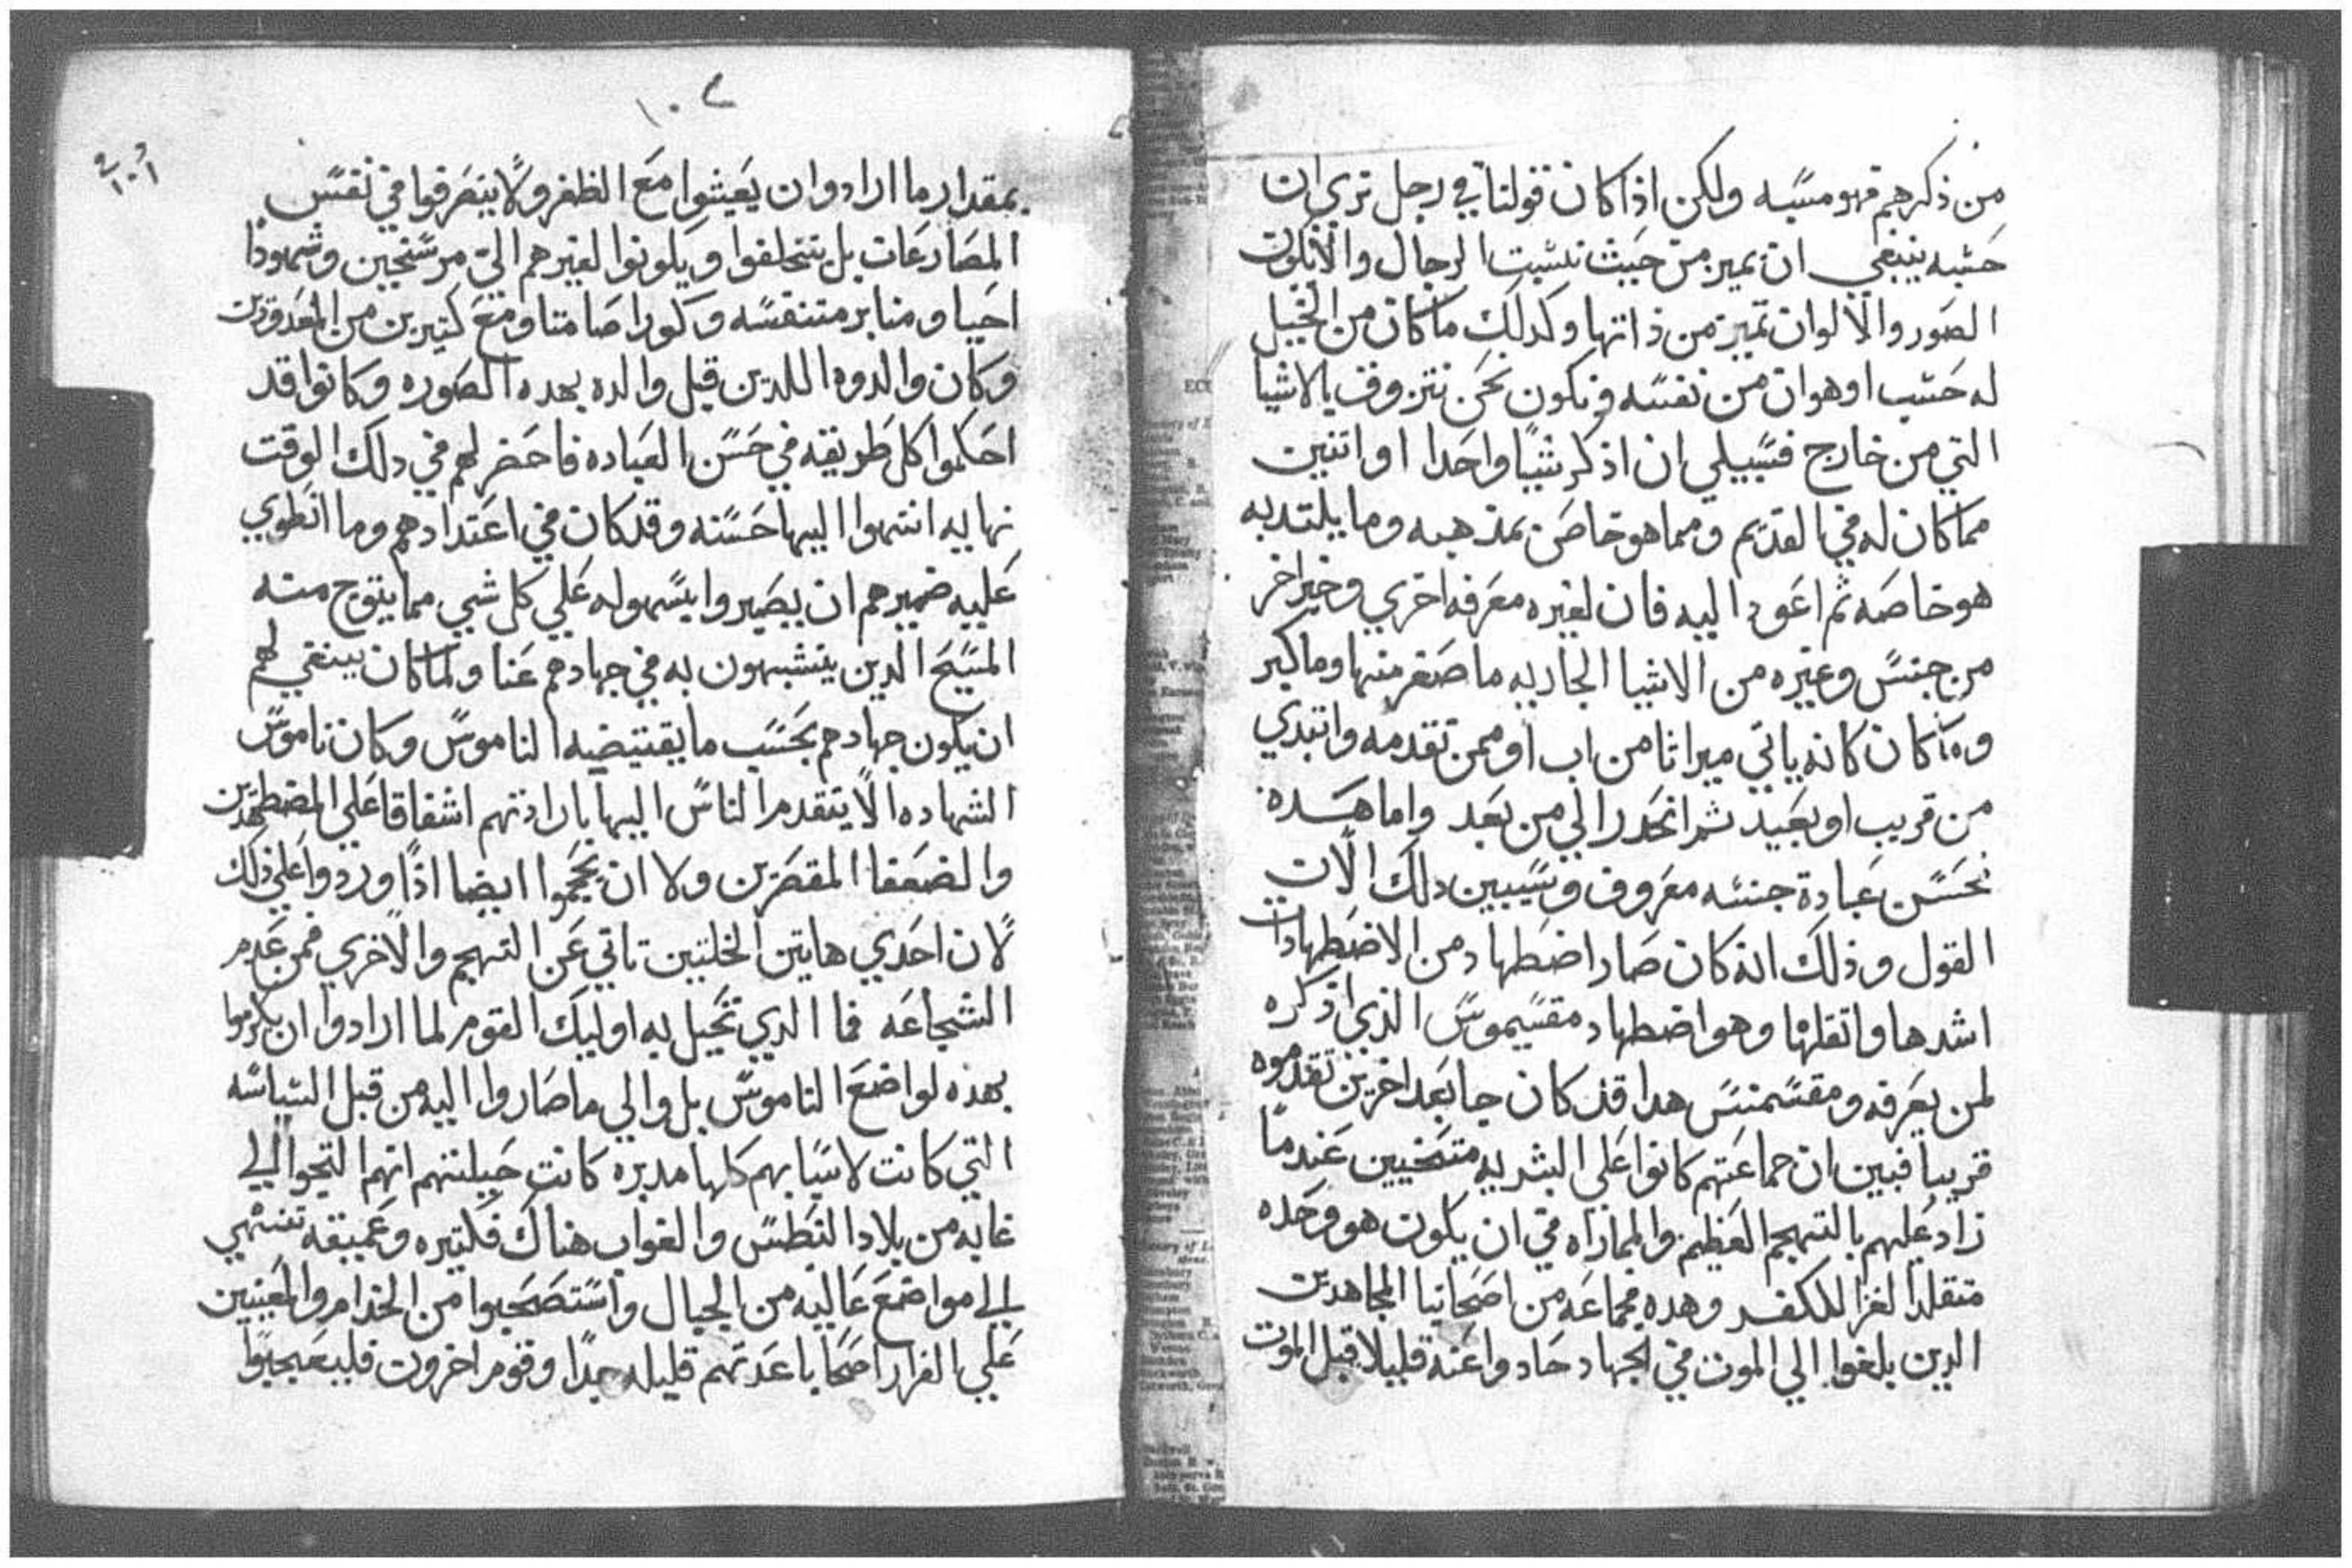 من ذكرهم فهو مسبه ولكن اذا كان قولنا في رجل نري ان
حسبه ينبغي ان يميز من حيث نسبت الرجال والا فلون
الصور والالوان تميز من ذاتها وكدلك ما كان من الخيل
له حسب او هوان من نفسه ونكون نحن نتزوق بالاشيا
التي من خارج فسبيلي ان اذكر شيا واحدا او اتنين
مما كان له في القديم ومما هو خاص بمذهبه وما يلتد به
هو خاصه ثم اعود اليه فان لغيره معرفه اخري وخبر اخر
من جنس وغيره من الاشيا الجاريه ما صغر منها وما كبر
وما كان كانه ياتي ميراثا من اب او ممن تقدمه وابتدي
من قريب او بعيد ثم انحدر الي من بعد واما هده
نحسن عبادة جنسه معروف وسيبين دلك الان
القول وذلك انه كان صار اضطهاد من الاضطهادات
اشدها واتقلها وهو اضطهاد مقسيموس الذي اذكره
لمن يعرفه ومقسمنس هدا قد كان جا بعد اخرين تقدموه
قريبا فبين ان جماعتهم كانوا علي البشريه متسخيين عندما
زاد عليهم بالتهجم العظيم والمماراه في ان يكون هو وحده
متقلدا لغزا للكفر وهده فجماعه من اصحابنا المجاهدين
الدين بلغوا الي الموت في الجهاد حادوا عنه قليلا قبل الموت
١٠٢
بمقدار ما ارادوا ان يعيشوا مع الظفر ولا ينصرفوا في نفس
المصارعات بل يتخلفوا ويكونوا لغيرهم الي مرسخين وشهودا
احيا ومنابر متنفسه وكورا صامتا ومع كتيرين من المعدودين
وكان والدوه اللدين قبل والده بهده الصوره وكانوا قد
احكموا كل طريقه في حسن العباده فاحضر لهم في دلك الوقت
نهايه انتهوا اليها حسنه وقد كان في اعتدادهم وما انطوي
عليه ضميرهم ان يصيروا يسهوله علي كل شي مما يتوج منه
المسيح الدين يتشبهون به في جهادهم عنا ولما كان ينبغي لهم
ان يكون جهادهم بحسب ما يقتضيه الناموس وكان ناموس
الشهاده الا يتقدم الناس اليها بارادتهم اشفاقا علي المضطهدين
والضعفا المقصرين ولا ان يحجموا ايضا اذا وردوا علي ذلك
لان احدي هاتين الخلتين تاتي عن التهجم والاخري فمن عدم
الشجاعه فما الدي تحيل به اوليك القوم لما ارادوا ان يكرموا
بهذه لواضع الناموس بل والي ما صاروا اليه من قبل السياسه
التي كانت لاسبابهم كلها مدبره كانت حيلتهم انهم التجوا الي
غابه من بلاد النطس والغواب هناك فكتيره وعميقه تنتهي
الي مواضع عاليه من الجبال واستصحبوا من الخدام والمعينين
علي الفرار اصحابا عدتهم قليله جدا وقوم اخرون فليعجبوا